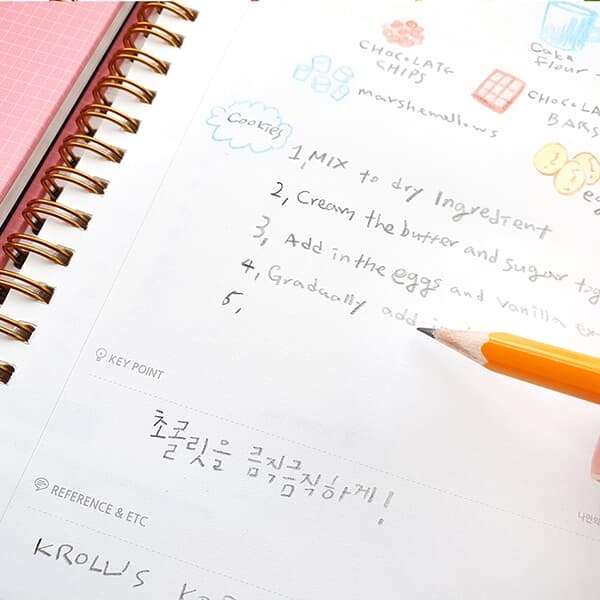 CHOCOLATE
CHIPS
Cake
flour
marshemellows
CHOCOLA
BARS
Cookies
eg
1, Mix to dry Ingredient
2, Cream the butter and sugar tog
3, Add in the eggs and vanilla ex
4, Gradually add
5,
KEY POINT
초콜릿을 큼직큼직하게!
나만의
REFERENCE & ETC
KROLLS